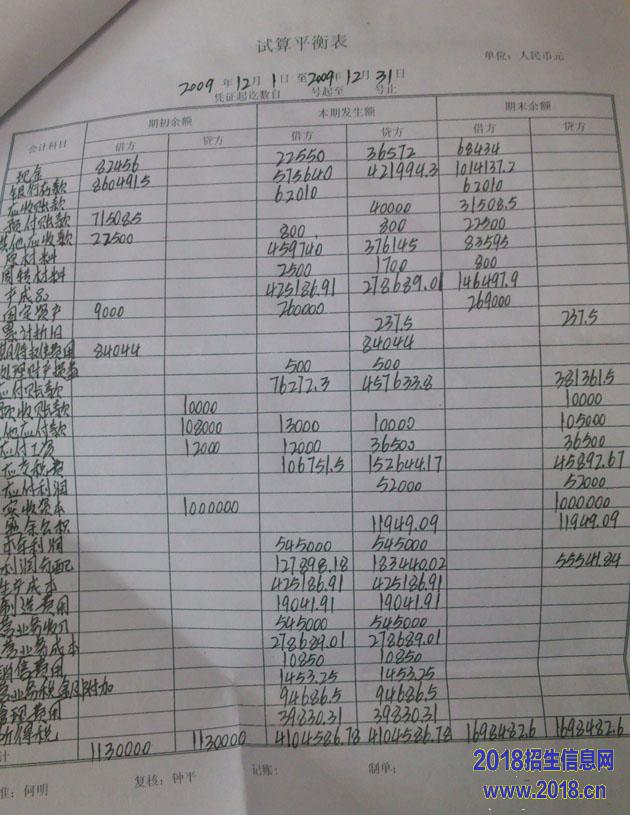 试算平衡表
单位：人民币元
2009 年 12 月 1 日 至 2009 年 12 月 31 日
凭证起讫数自 号起至 号止
会计科目 期初余额 本期发生额 期末余额
借方 贷方 借方 贷方 借方 贷方
现金 82456 22550 36572 68434
银行存款 860491.5 575640 421994.3 1014137.2
应收账款 62010 62010
预付账款 71508.5 40000 31508.5
其他应收款 22500 800 800 22500
原材料 459740 376145 83595
周转材料 2500 1700 800
产成品 425186.91 278689.01 146497.9
固定资产 9000 260000 269000
累计折旧 237.5 237.5
费用 84044 84044
500 500
应付账款 76272.3 457633.8 381361.5
预收账款 10000 10000
他应付款 108000 13000 10000 105000
应付工资 12000 12000 36500 36500
应交税费 106751.5 152644.17 45892.67
应付利润 52000 52000
实收资本 1000000 1000000
盈余公积 11949.09 11949.09
本年利润 545000 545000
利润分配 127898.18 183440.02 55541.84
生产成本 425186.91 425186.91
制造费用 19041.91 19041.91
营业务收入 545000 545000
营业务成本 278689.01 278689.01
销售费用 10850 10850
营业务税金及附加 1453.25 1453.25
管理费用 94686.5 94686.5
所得税 39830.31 39830.31
计 1130000 1130000 4104586.78 4104586.78 1698482.6 1698482.6
准：何明 复核：钟平 记账： 制单：
2018招生信息网
www.2018.cn